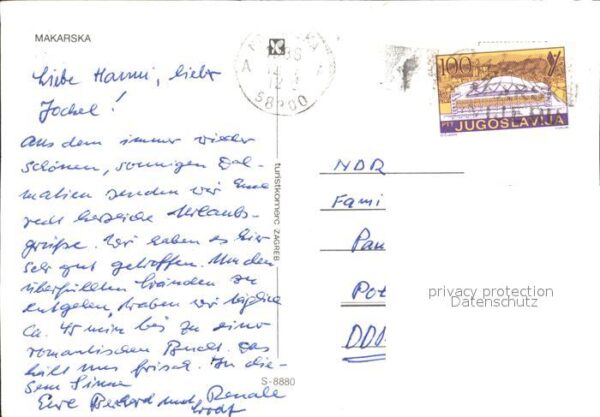 MAKARSKA
Liebe Hanni, lieber
Jochel!
Aus dem immer wieder
schönen, sonnigen Dal-
matien senden wir Euch
recht herzliche Urlaubs-
grüße. Wir haben es hier
sehr gut getroffen. Um den
überfüllten Stränden zu
entgehen, traben wir täglich
ca. 45 min bis zu einer
romantischen Bucht. Das
hält uns frisch. In die-
sem Sinne
Eure Berhard und Renate
turistkomerc ZAGREB
S-8880
58300
100
PTT JUGOSLAVIJA
NDR
Fami
Pau
Pot
DDR
privacy protection
Datenschutz